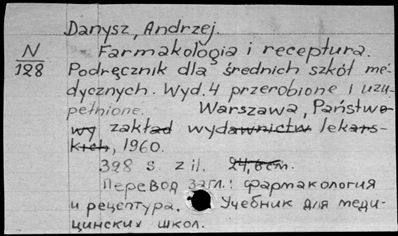 Danysz, Andrzej.
N
128
Farmakologia i receptura.
Podręcznik dla średnich szkół me-
dycznych. Wyd. 4 przerobione i uzu-
pełnione. Warszawa, Państwo-
wy zakład wydawnictw lekars-
kich, 1960.
328 s. z il. 24,6 cm.
Перевод загл.: Фармакология
и рецептура. Учебник для меди-
цинских школ.